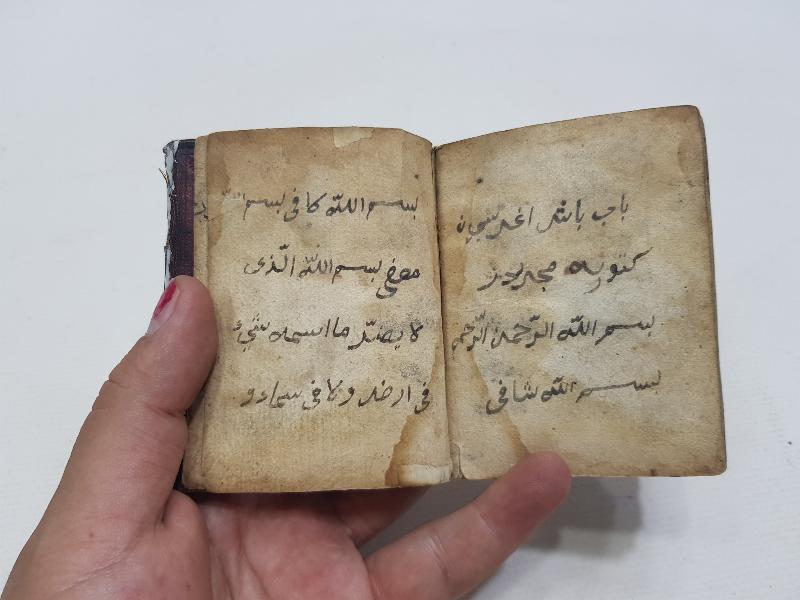 باب باش اغریسیچون
کتورسه مجربدر
بسم الله الرّحمن الرّحیم
بسم الله شافی
بسم الله کافی بسم الله
معفی بسم الله الّذی
لا یضرّ ما اسمه شیء
فی ارضد ولا فی سماد و